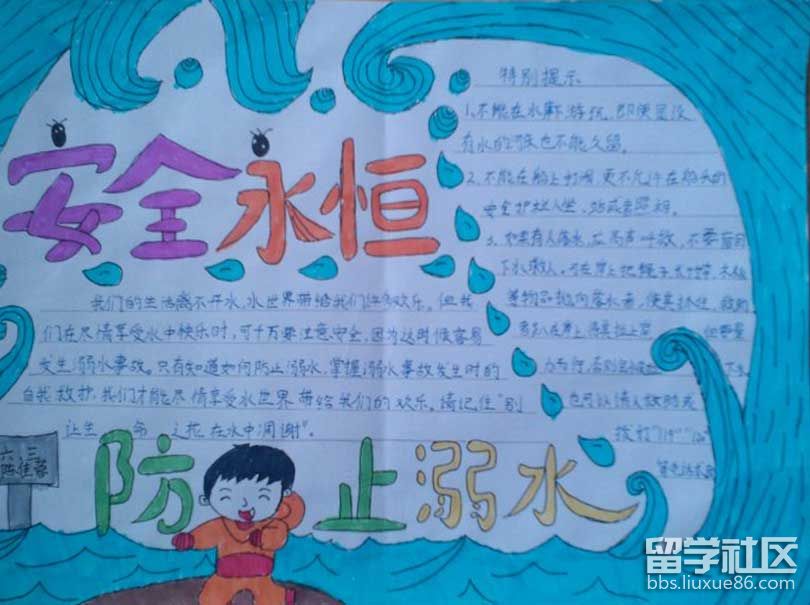 安全永恒
我们的生活离不开水,水世界带给我们许多欢乐。但我
们在尽情享受水中快乐时,可千万要注意安全,因为这时候容易
发生溺水事故。只有知道如何防止溺水,掌握溺水事故发生时的
自我救护,我们才能尽情享受水世界带给我们的欢乐。请记住"别
让生命之花在水中凋谢"。
特别提示
1、不能在水边游玩,即便是没
有水的河床也不能久留。
2、不能在船上打闹,更不允许在船头的
安全护栏入坐,站或者照相。
3、如果有人落水,应高声呼救,不要盲目
下水救人,可在岸上把绳子、长竹竿、木板
等物品抛向落水者,使其抓住,救助
者趴在岸上,将其拉上岸
但要量
力而行,否则
也可以请人救助或
拨打"119""120"
六三
陈佳蓉
防止溺水
留学社区
bbs.liuxue86.com